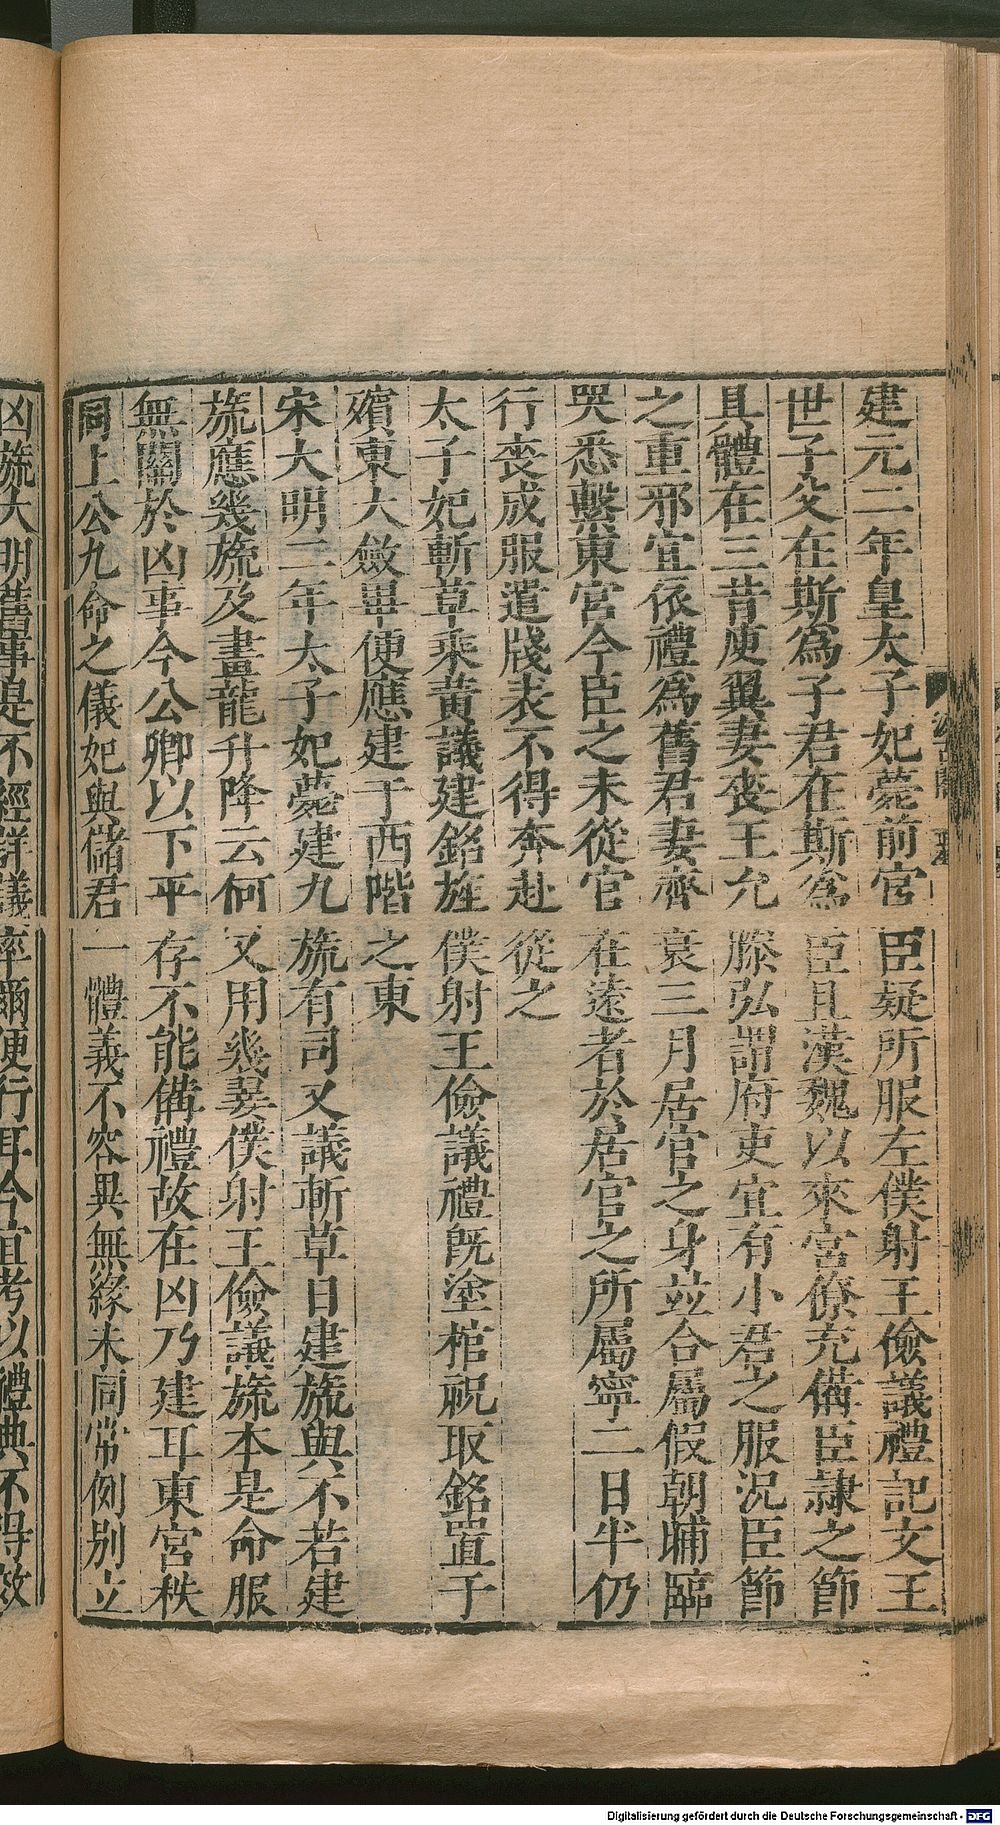 建元二年皇太子妃薨前宮臣疑所服左僕射王儉議禮記文王
世子父在斯爲子君在斯爲臣且漢魏以來宮僚充備臣隸之節
具體在三昔庾翼妻喪王允滕弘謂府吏宜有小君之服況臣節
之重邪宜依禮爲舊君妻齊衰三月居官之身並合屬假朝晡臨
哭悉繫東宮今臣之未從官在遠者於居官之所屬寧二日半仍
行喪成服遣牋表不得奔赴從之
太子妃斬草乘黃議建銘旌僕射王儉議禮既塗棺祝取銘置于
殯東大斂畢便應建于西階之東
宋大明二年太子妃薨建九旒有司又議斬草日建旒與不若建
旒應幾旒及畫龍升降云何又用幾翣僕射王儉議旒本是命服
無關於凶事今公卿以下平存不能備禮故在凶乃建耳東宮秩
同上公九命之儀妃與儲君一體義不容異無緣未同常例別立
凶旒大明舊事是不經詳議率爾便行耳今宜考以禮典不得效
Digitalisierung gefördert durch die Deutsche Forschungsgemeinschaft - DFG